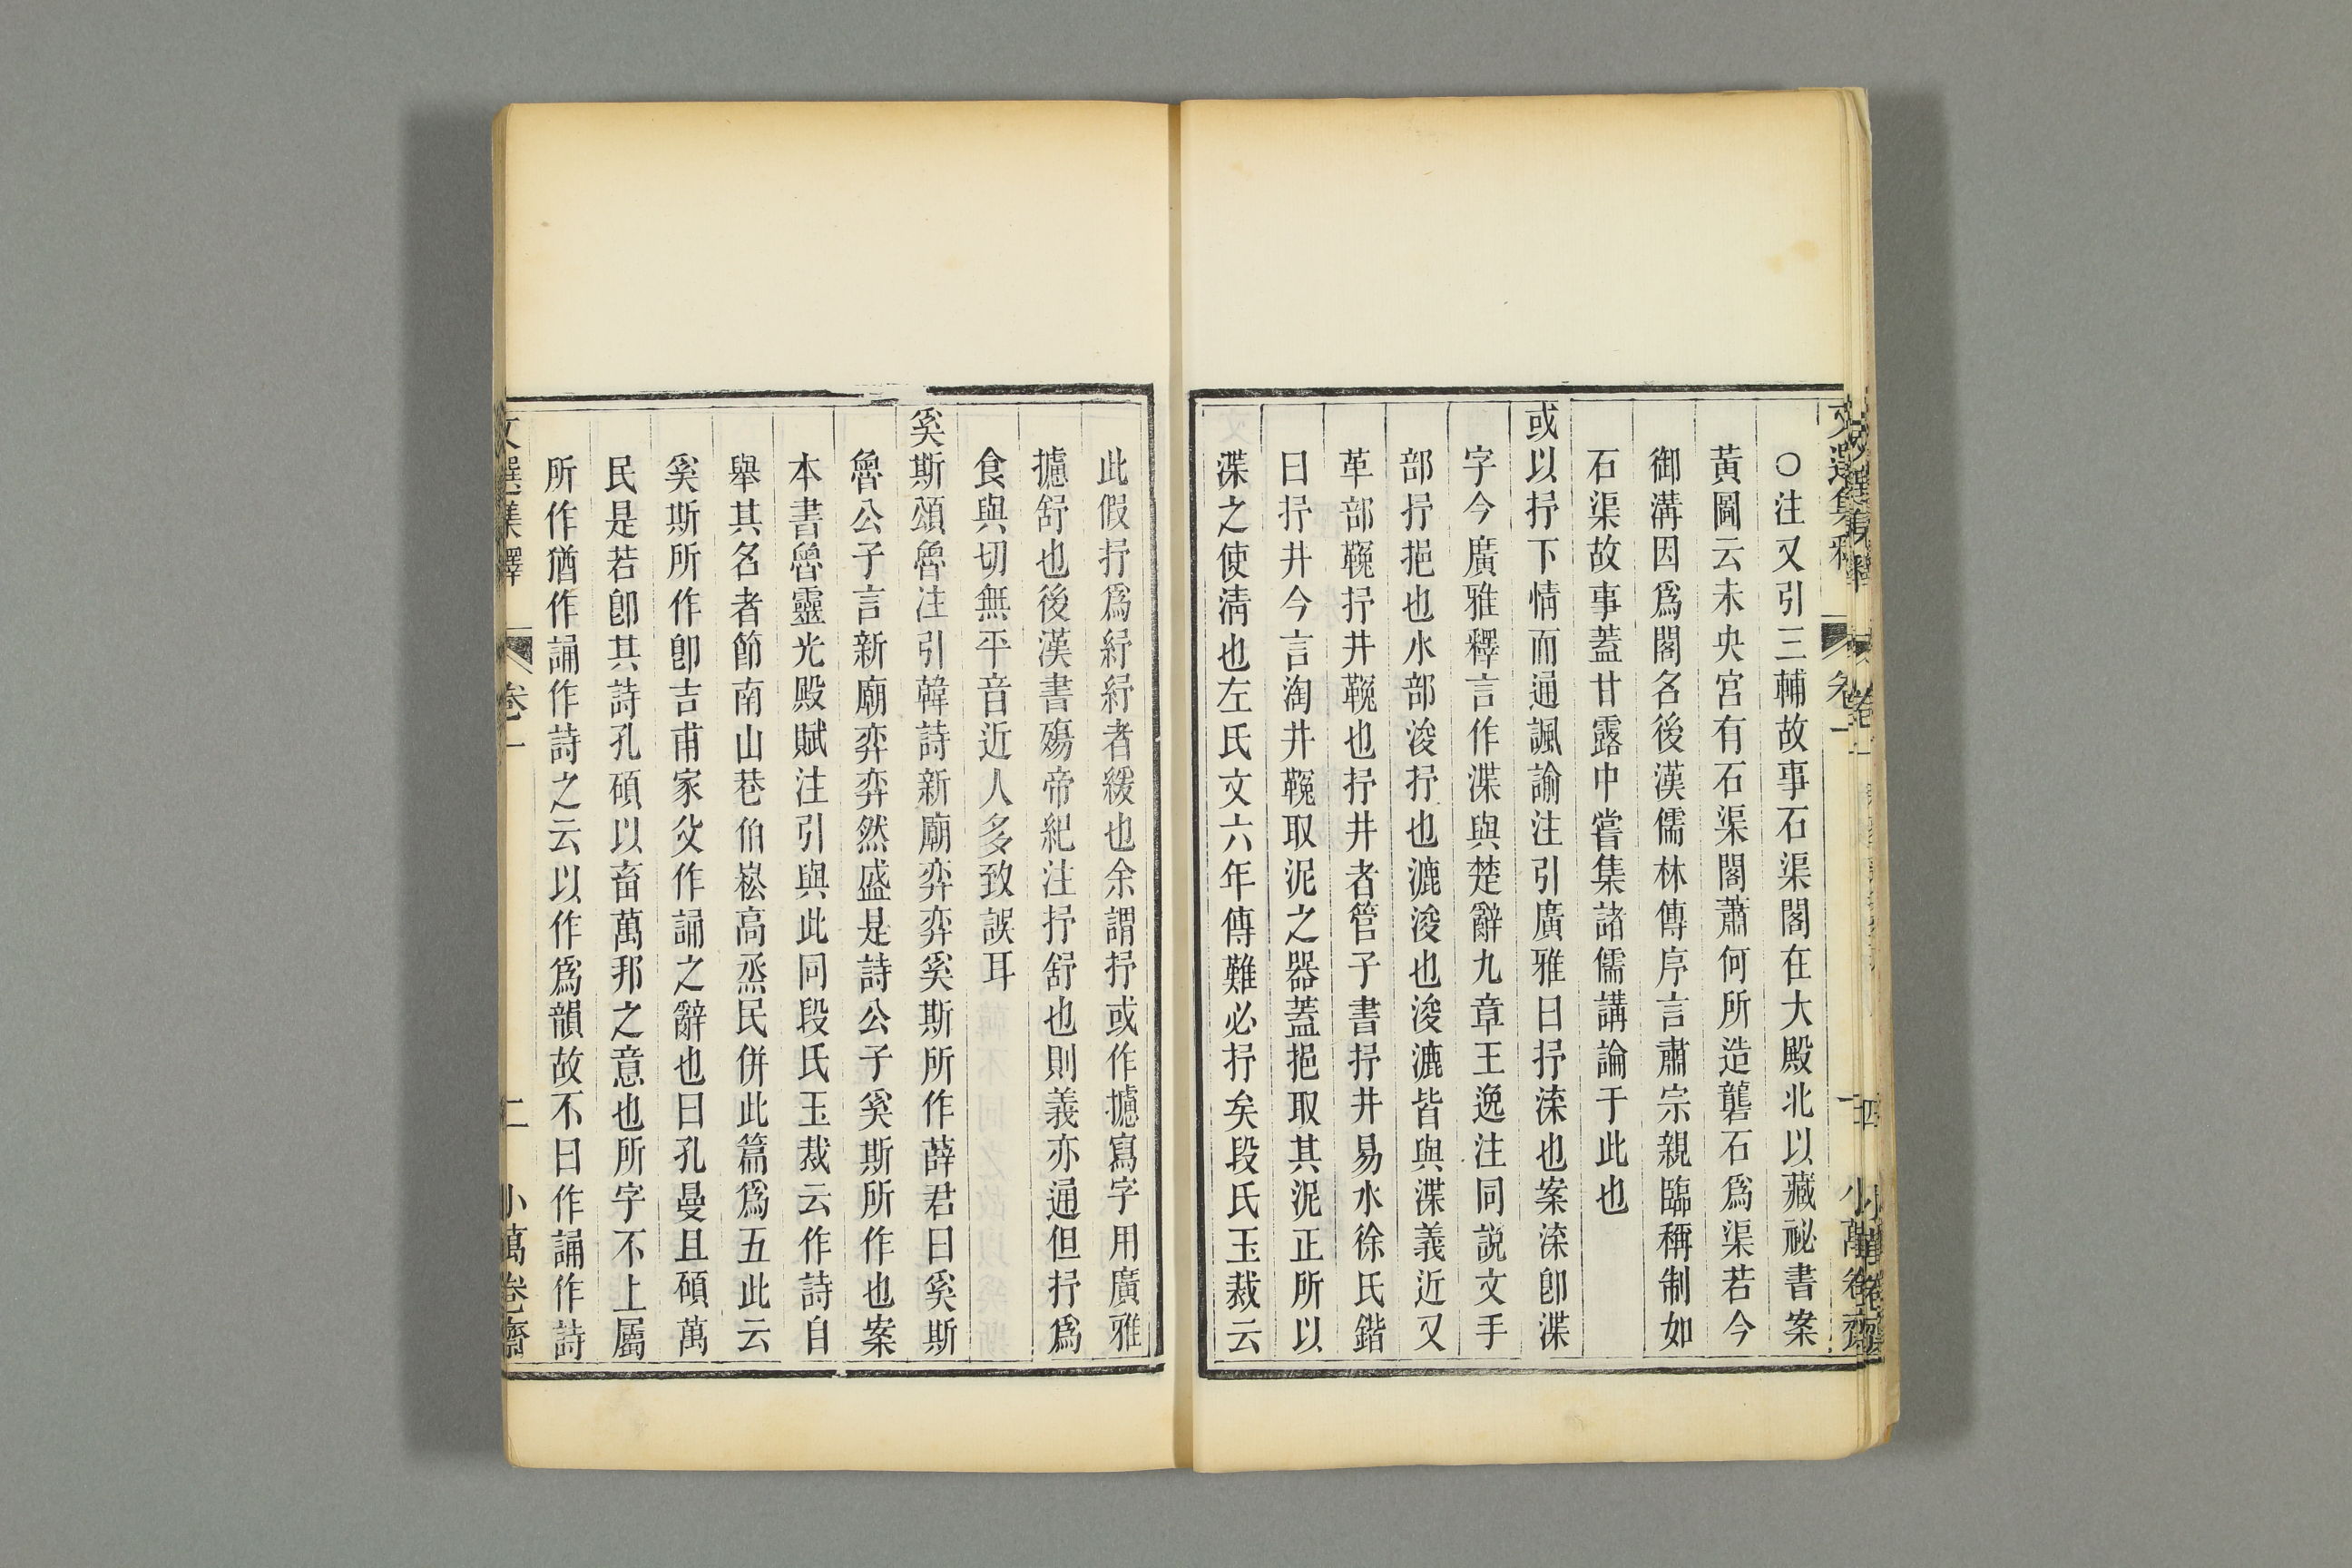 ○注又引三輔故事石渠閣在大殿北以藏祕書案
黃圖云未央宮有石渠閣蕭何所造礱石爲渠若今
御溝因爲閣名後漢儒林傳序言肅宗親臨稱制如
石渠故事蓋甘露中嘗集諸儒講論于此也
或以抒下情而通諷諭注引廣雅曰抒渫也案渫卽渫
字今廣雅釋言作渫與楚辭九章王逸注同說文手
部抒挹也水部浚抒也漉浚也浚漉皆與渫義近又
革部䩩抒井䩩也抒井者管子書抒井易水徐氏鍇
曰抒井今言淘井䩩取泥之器蓋挹取其泥正所以
渫之使淸也左氏文六年傳難必抒矣段氏玉裁云
此假抒爲紓紓者緩也余謂抒或作攄寫字用廣雅
攄舒也後漢書殤帝紀注抒舒也則義亦通但抒爲
食與切無平音近人多致誤耳
奚斯頌魯注引韓詩新廟弈弈奚斯所作薛君曰奚斯
魯公子言新廟弈弈然盛是詩公子奚斯所作也案
本書魯靈光殿賦注引與此同段氏玉裁云作詩自
舉其名者節南山巷伯崧高烝民併此篇爲五此云
奚斯所作卽吉甫家父作誦之辭也曰孔曼且碩萬
民是若卽其詩孔碩以畜萬邦之意也所字不上屬
所作猶作誦作詩之云以作爲韻故不曰作誦作詩
文選集釋 卷一 二 小萬卷齋